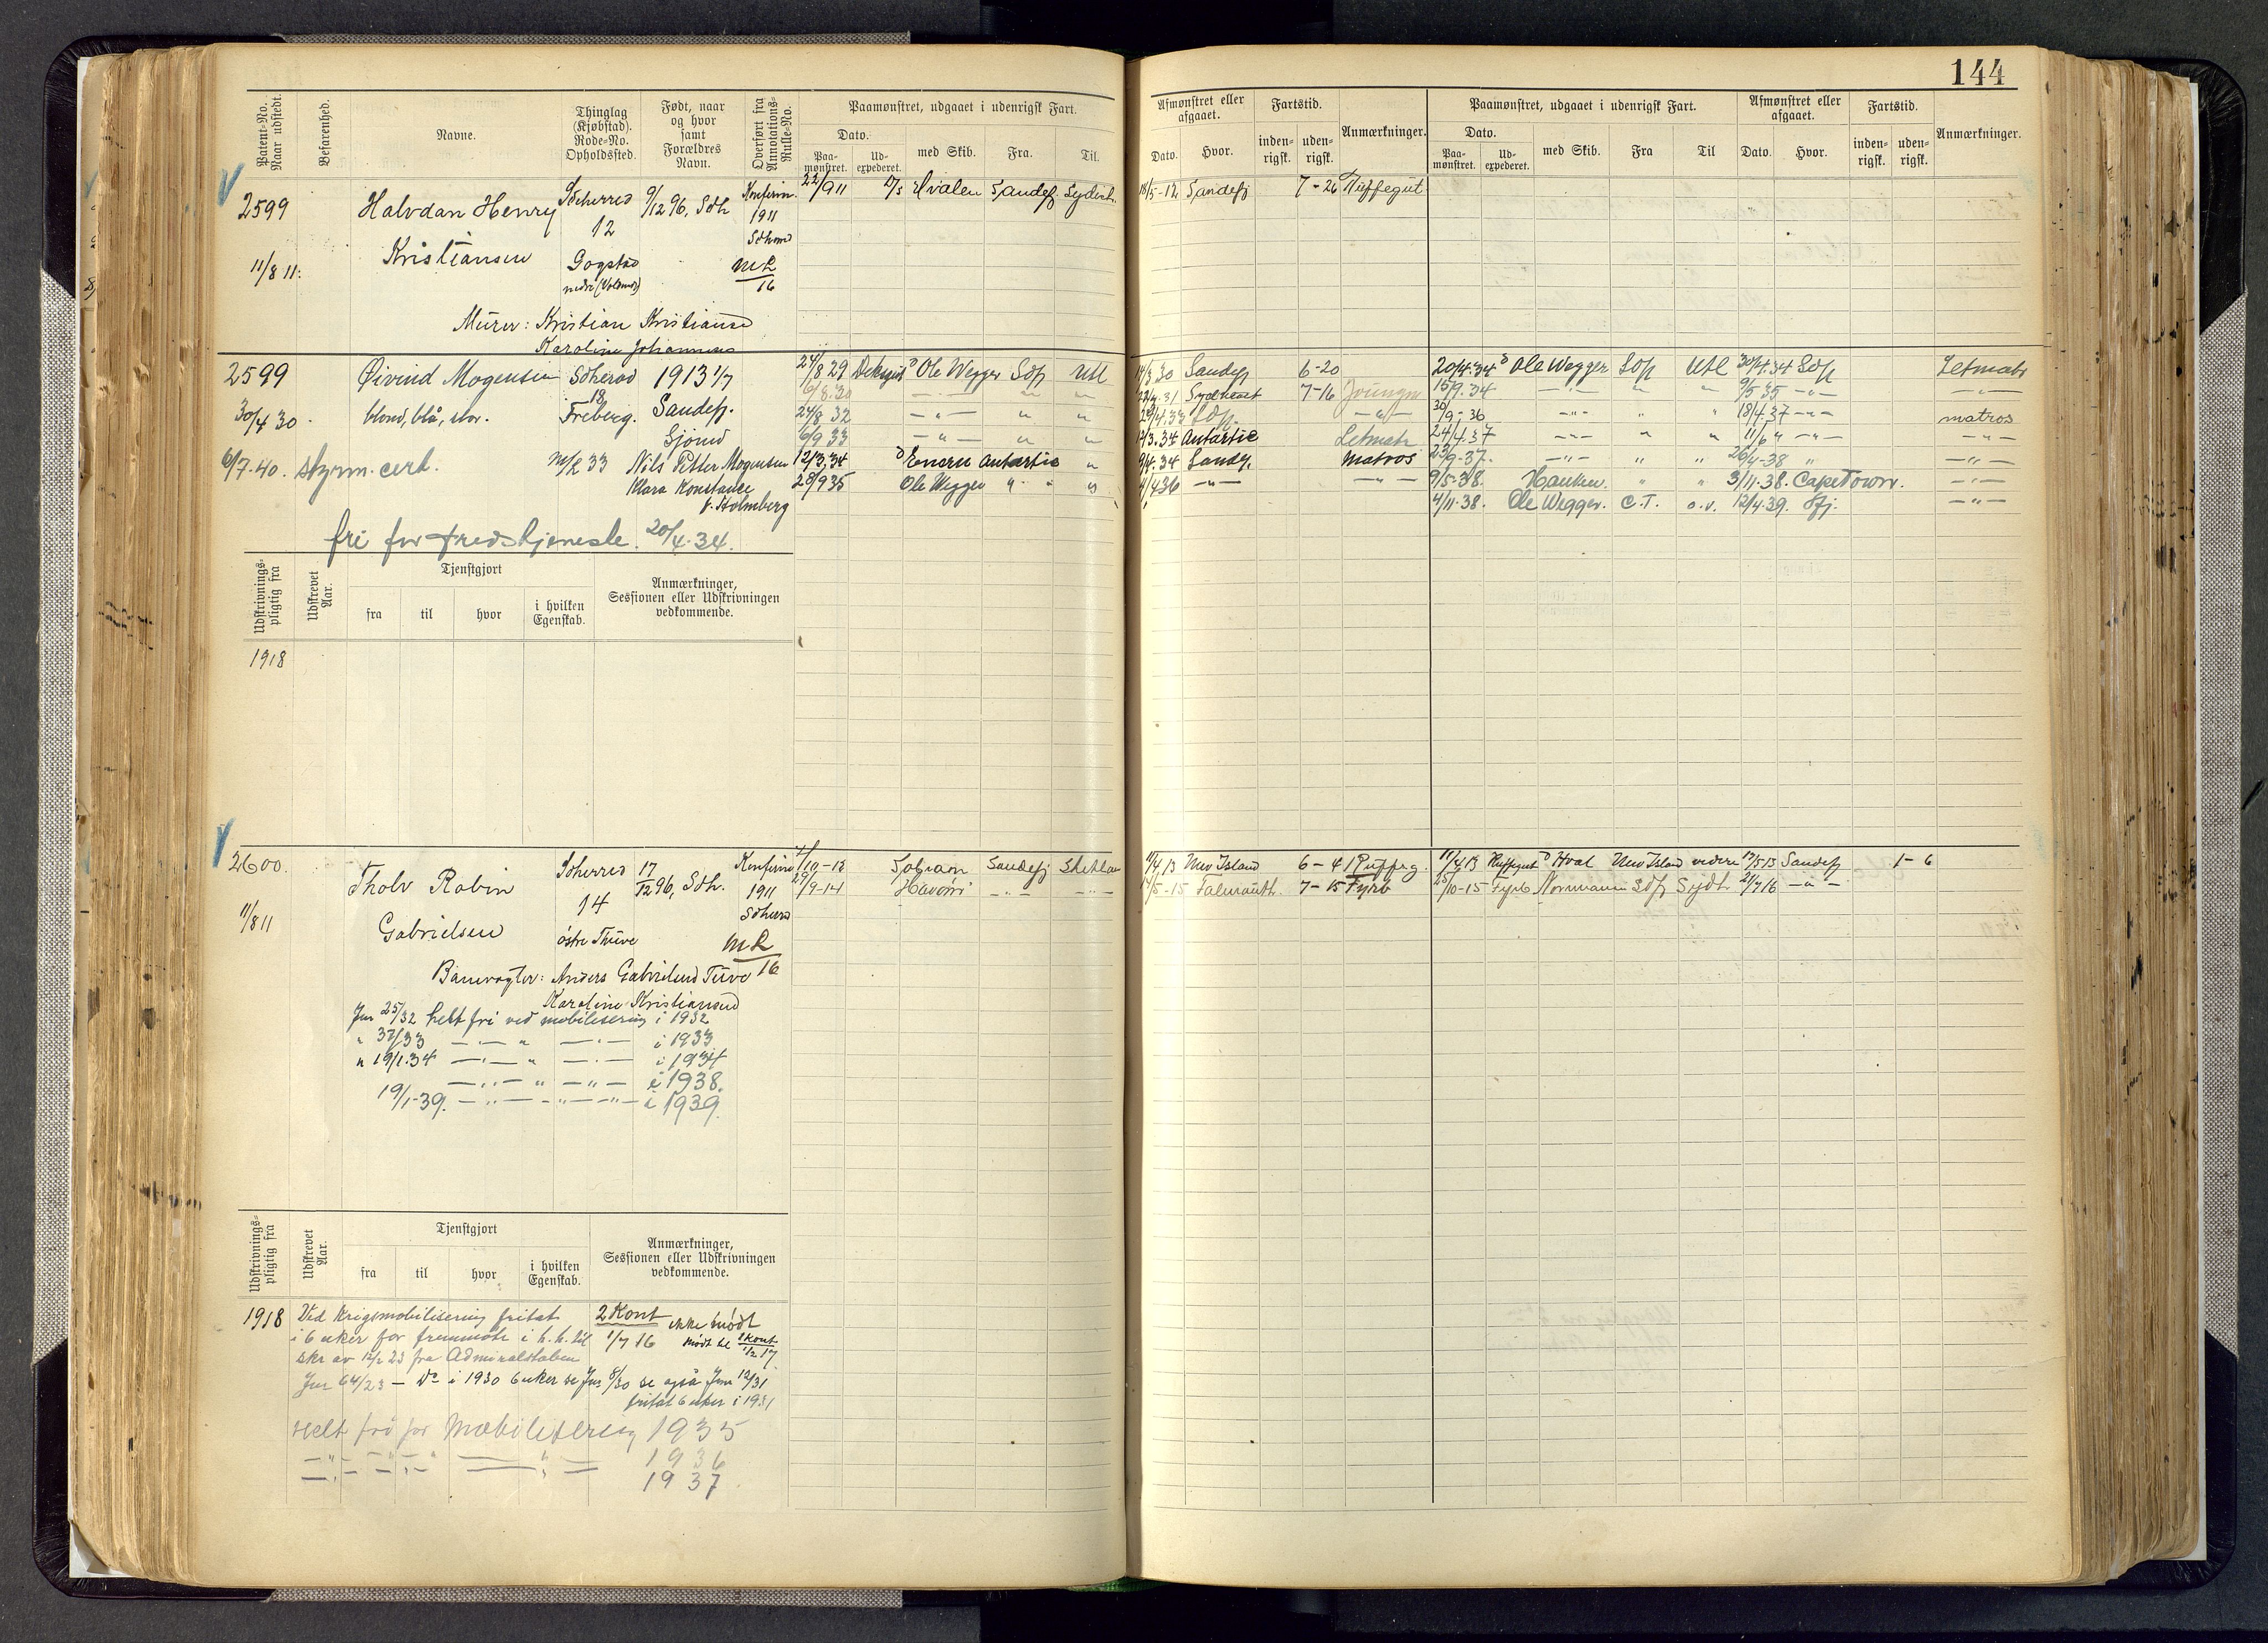 144
Patent-No. Naar udstedt.
Befarenhed.
Navne.
Thinglag (Kjøbstad). Rode-No. Opholdssted.
Født, naar og hvor samt Forældres Navn.
Overført fra Annotations-Rulle-No.
Paamønstret, udgaaet i udenrigsk Fart.
Dato.
Paamønstret.
Udexpederet.
med Skib.
Fra.
Til.
Afmønstret eller afgaaet.
Dato.
Hvor.
Fartstid.
indenrigsk.
udenrigsk.
Anmærkninger.
Paamønstret, udgaaet i udenrigsk Fart.
Dato.
Paamønstret.
Udexpederet.
med Skib.
Fra
Til
Afmønstret eller afgaaet.
Dato.
Hvor.
Fartstid.
indenrigsk.
udenrigsk.
Anmærkninger.
2599 Halvdan Henry Sdeherred 9/12 96, Sdh Konfirm. 22/9 11 Hvalen Sandefj Sydish. 18/5-12 Sandefj 7-26
12 1911
11/8 11. Kristiansen Gogstad
nedre ML
16
Murer: Kristian Kristiansen
Karoline Johannsen
2599 Øivind Mogensen Sdherad 1913 1/7 24/8 29 Ole Wegger Sdfj Utl 30 Sandefj 6-20 20/4.34 Ole Wegger Sdfj Utl 30/4.34 Sdfj Letmatr
18 6/8.30 -"- " " Sydhavet 7-16 15/9.34 -"- " " 9/5 35 -"- -"-
30/4 30. blond, blå, stor. Freberg. Sandefj. 24/8 32 -"- " " Sdfj. -"- 30/9-36 -"- " " 18/4.37 -"- matros
Gjönd 6/9 33 -"- " " 12/3.34 Antartic Letmatr 24/4.37 -"- " " 11/6 " -"- -"-
6/7-40. styrm. cert. M/L 33 Nils Petter Mogensen 12/3.34 Enern Antartic " 9/4.34 Sandfj. Matros 23/9-37. -"- " " 26/4-38 " -"-
Klara Konstance 28/9 35 Ole Wegger " " 4/4 36 -"- -"- 9/5-38. Hauken. " " 3/11-38. CapeTown. -"-
f. Holmberg 4/11-38. Ole Wegger. C.T. o.v. 12/4.39. Sfj. -"-
fri for fredstjeneste. 20/4.34.
Udskrivningspligtig fra
Udskrevet Aar.
Tjenstgjort
fra
til
hvor
i hvilken Egenskab.
Anmærkninger, Sessionen eller Udskrivningen vedkommende.
1918
2600. Tholv Robin Sdherred 17/12 96, Sdh. Konfirm Sobraon Sandefj Shetlan 11/4 13 New Island 6-4 11/4 13 Hval New Island videre Sandefj 1-6
14 1911 29/9-14 Havöri -"- -"- 5-15 Falmouth. 7-15 Fyrb 10-15 Fyrb Normanna Sdfj Sydh 21/7 16 -"-
11/8 11 Gabrielsen Sdherred
östre Thuve ML
16
Banevogter: Anders Gabrielsen Tuve
Karoline Kristiansen
Jnr 25/32 helt fri ved mobilisering i 1932
" 37/33 -"- " -"- i 1933
" 19/1.34 -"- " -"- i 1934
-"- " -"- i 1938.
19/1-39. -"- -"- -"- i 1939.
Udskrivningspligtig fra
Udskrevet Aar.
Tjenstgjort
fra
til
hvor
i hvilken Egenskab.
Anmærkninger, Sessionen eller Udskrivningen vedkommende.
1918 Ved Krigsmobilisering fritat 2 Kont ikke mødt
i 6 uker for fremmöte i h.h. til 1/7 16 Mödt til 2 Kont 1/2 17
skr av 12/2 23 fra Admiralstaben
Jnr 64/23 - do i 1930 6 uker se Jnr 8/30 se også Jnr 12/31
fritat 6 uker i 1931
Helt fri for Mobilisering 1935
-"- -"- -"- 1936
-"- -"- -"- 1937